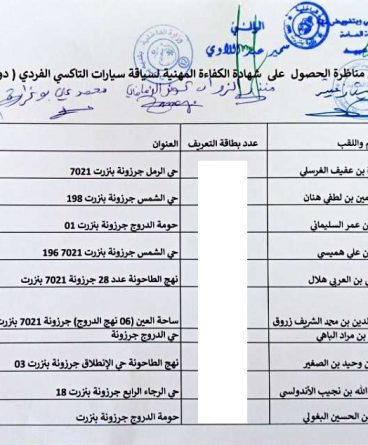 الوالي
سمير عبد اللاوي
مناظرة الحصول على شهادة الكفاءة المهنية لسياقة سيارات التاكسي الفردي ( دو
م واللقب عدد بطاقة التعريف العنوان
بن عفيف الغرسلي حي الرمل جرزونة بنزرت 7021
مين بن لطفي هنان حي الشمس جرزونة بنزرت 198
بن عمر السليماني حومة الدروج جرزونة بنزرت 01
ن علي هميسي حي الشمس جرزونة بنزرت 7021 196
ي بن العربي هلال نهج الطاحونة عدد 28 جرزونة بنزرت 7021
الدين بن محمد الشريف زروق ساحة العين (06 نهج الدروج) جرزونة 7021 بنزرت
بن مراد الباهي حي الدروج جرزونة
بن وحيد بن الصغير نهج الطاحونة حي الإنطلاق جرزونة بنزرت 03
الله بن نجيب الأندولسي حي الرجاء الرابع جرزونة بنزرت 18
ن الحسين البغولي حومة الدروج جرزونة بنزرت